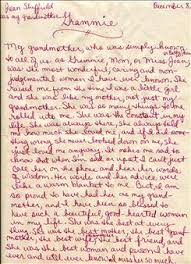 Jean Sheffield
December 3
as my grandmother
Grammie
My grandmother, who was simply known
to all of us as Grammie, Mom, or Miss Jean,
was the most wonderful, caring and non
judgemental woman I have ever known. She
raised me from the time I was a little girl
and she was like my mother, not just my
grandmother. She was so many things
rolled into one. She was the constant in my
life. She was always there, she always told
me how much she loved me, and if I did some
thing wrong she never looked down on me, she
still loved me anyway. It makes me sad to
know that when I'm sad or upset I can't just
call her on the phone and hear her words of
wisdom. Her words and her advice were
like a warm blanket to me. But I am
so proud to have had her as my grand
mother, and I have been so blessed to
have such a beautiful, good hearted woman
in my life. She was the best at every
thing. She was the best mother, the best grand
mother, the best wife, the best friend, and
she was the best woman and person I have
ever and will ever know. I miss her so much